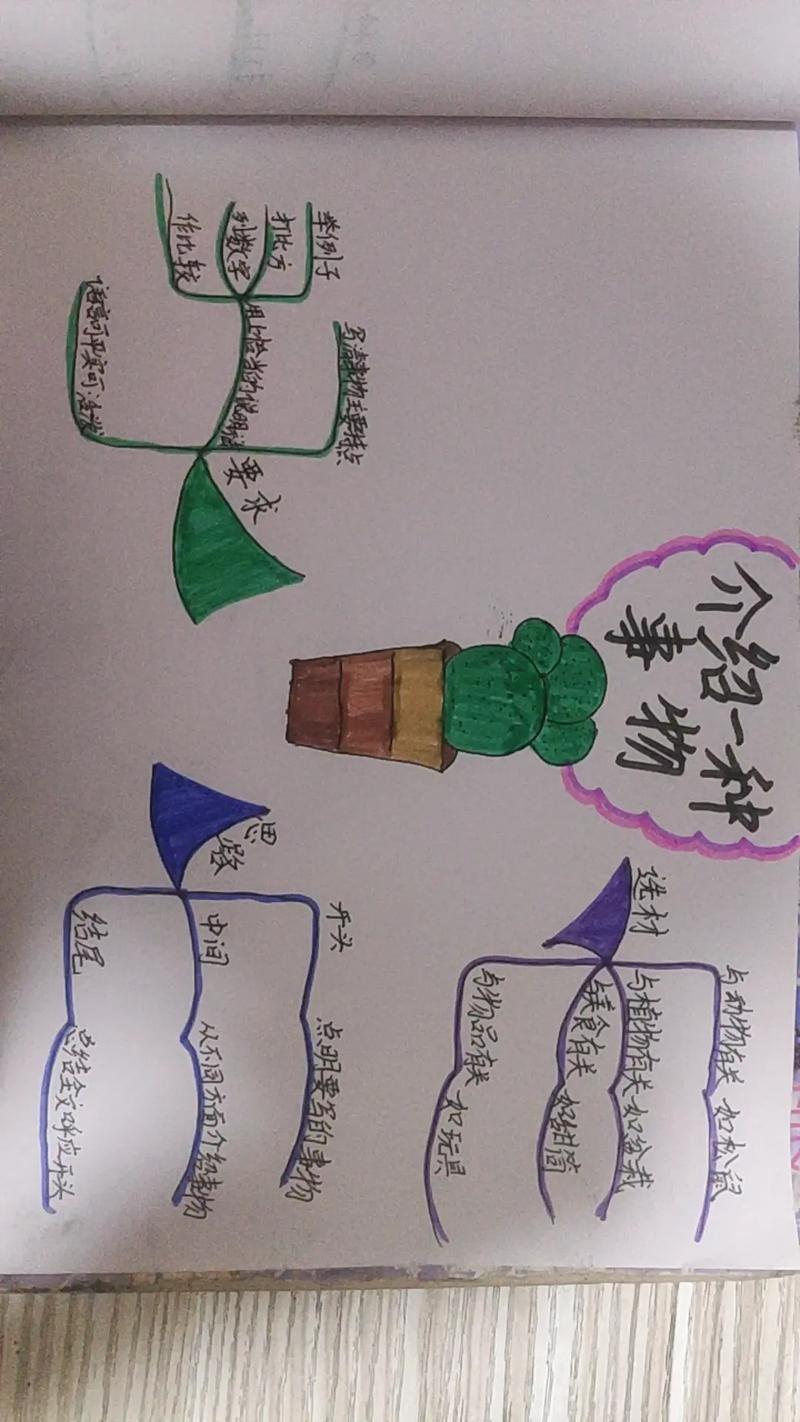 介绍一种
事物
选材
与动物有关 如松鼠
与植物有关 如盆栽
与美食有关 如甜筒
与物品有关 如玩具
思路
开头 点明要写的事物
中间 从不同方面介绍事物
结尾 总结全文呼应开头
要求
写清事物主要特点
用上恰当的说明
举例子
打比方
列数字
作比较
语言可平实可活泼